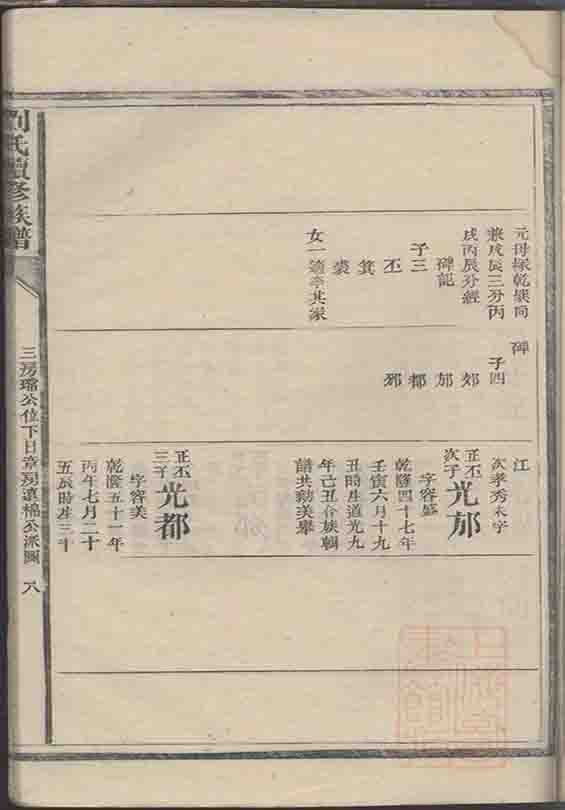 劉氏續修族譜
三房瑞公位下日章房滇楊公派圖 八
元母塚乾巽向
兼戌辰三分丙
戌丙辰分經
碑記
子三
丕
箕
裘
女一適李其家
碑
子四
郊
邡
都
邪
江
次孝秀未字
正丕次子 光邡
字容盛
乾隆四十七年
壬寅六月十九
丑時生道光九
年己丑合族輯
譜共勷美舉
正丕三子 光都
字容美
乾隆五十一年
丙午七月二十
五辰時生三十